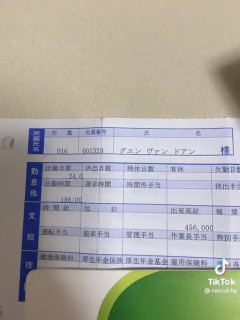 所属 社員番号 氏名
所属氏名
016 001329 グエン ヴァン ドアン 様
勤怠他
出勤日数 休出日数 特休日数 有休 欠勤日数
24.0
出勤時間 遅早時間 時間外手当 休出手
186:00
支給
出来高給 報奨
456,000
運転手当 管理手当 作業長手当 特別手
控
健康保険料 厚生年金保険 厚生年金基金 雇用保険料
TikTok
@cau.ut.hy